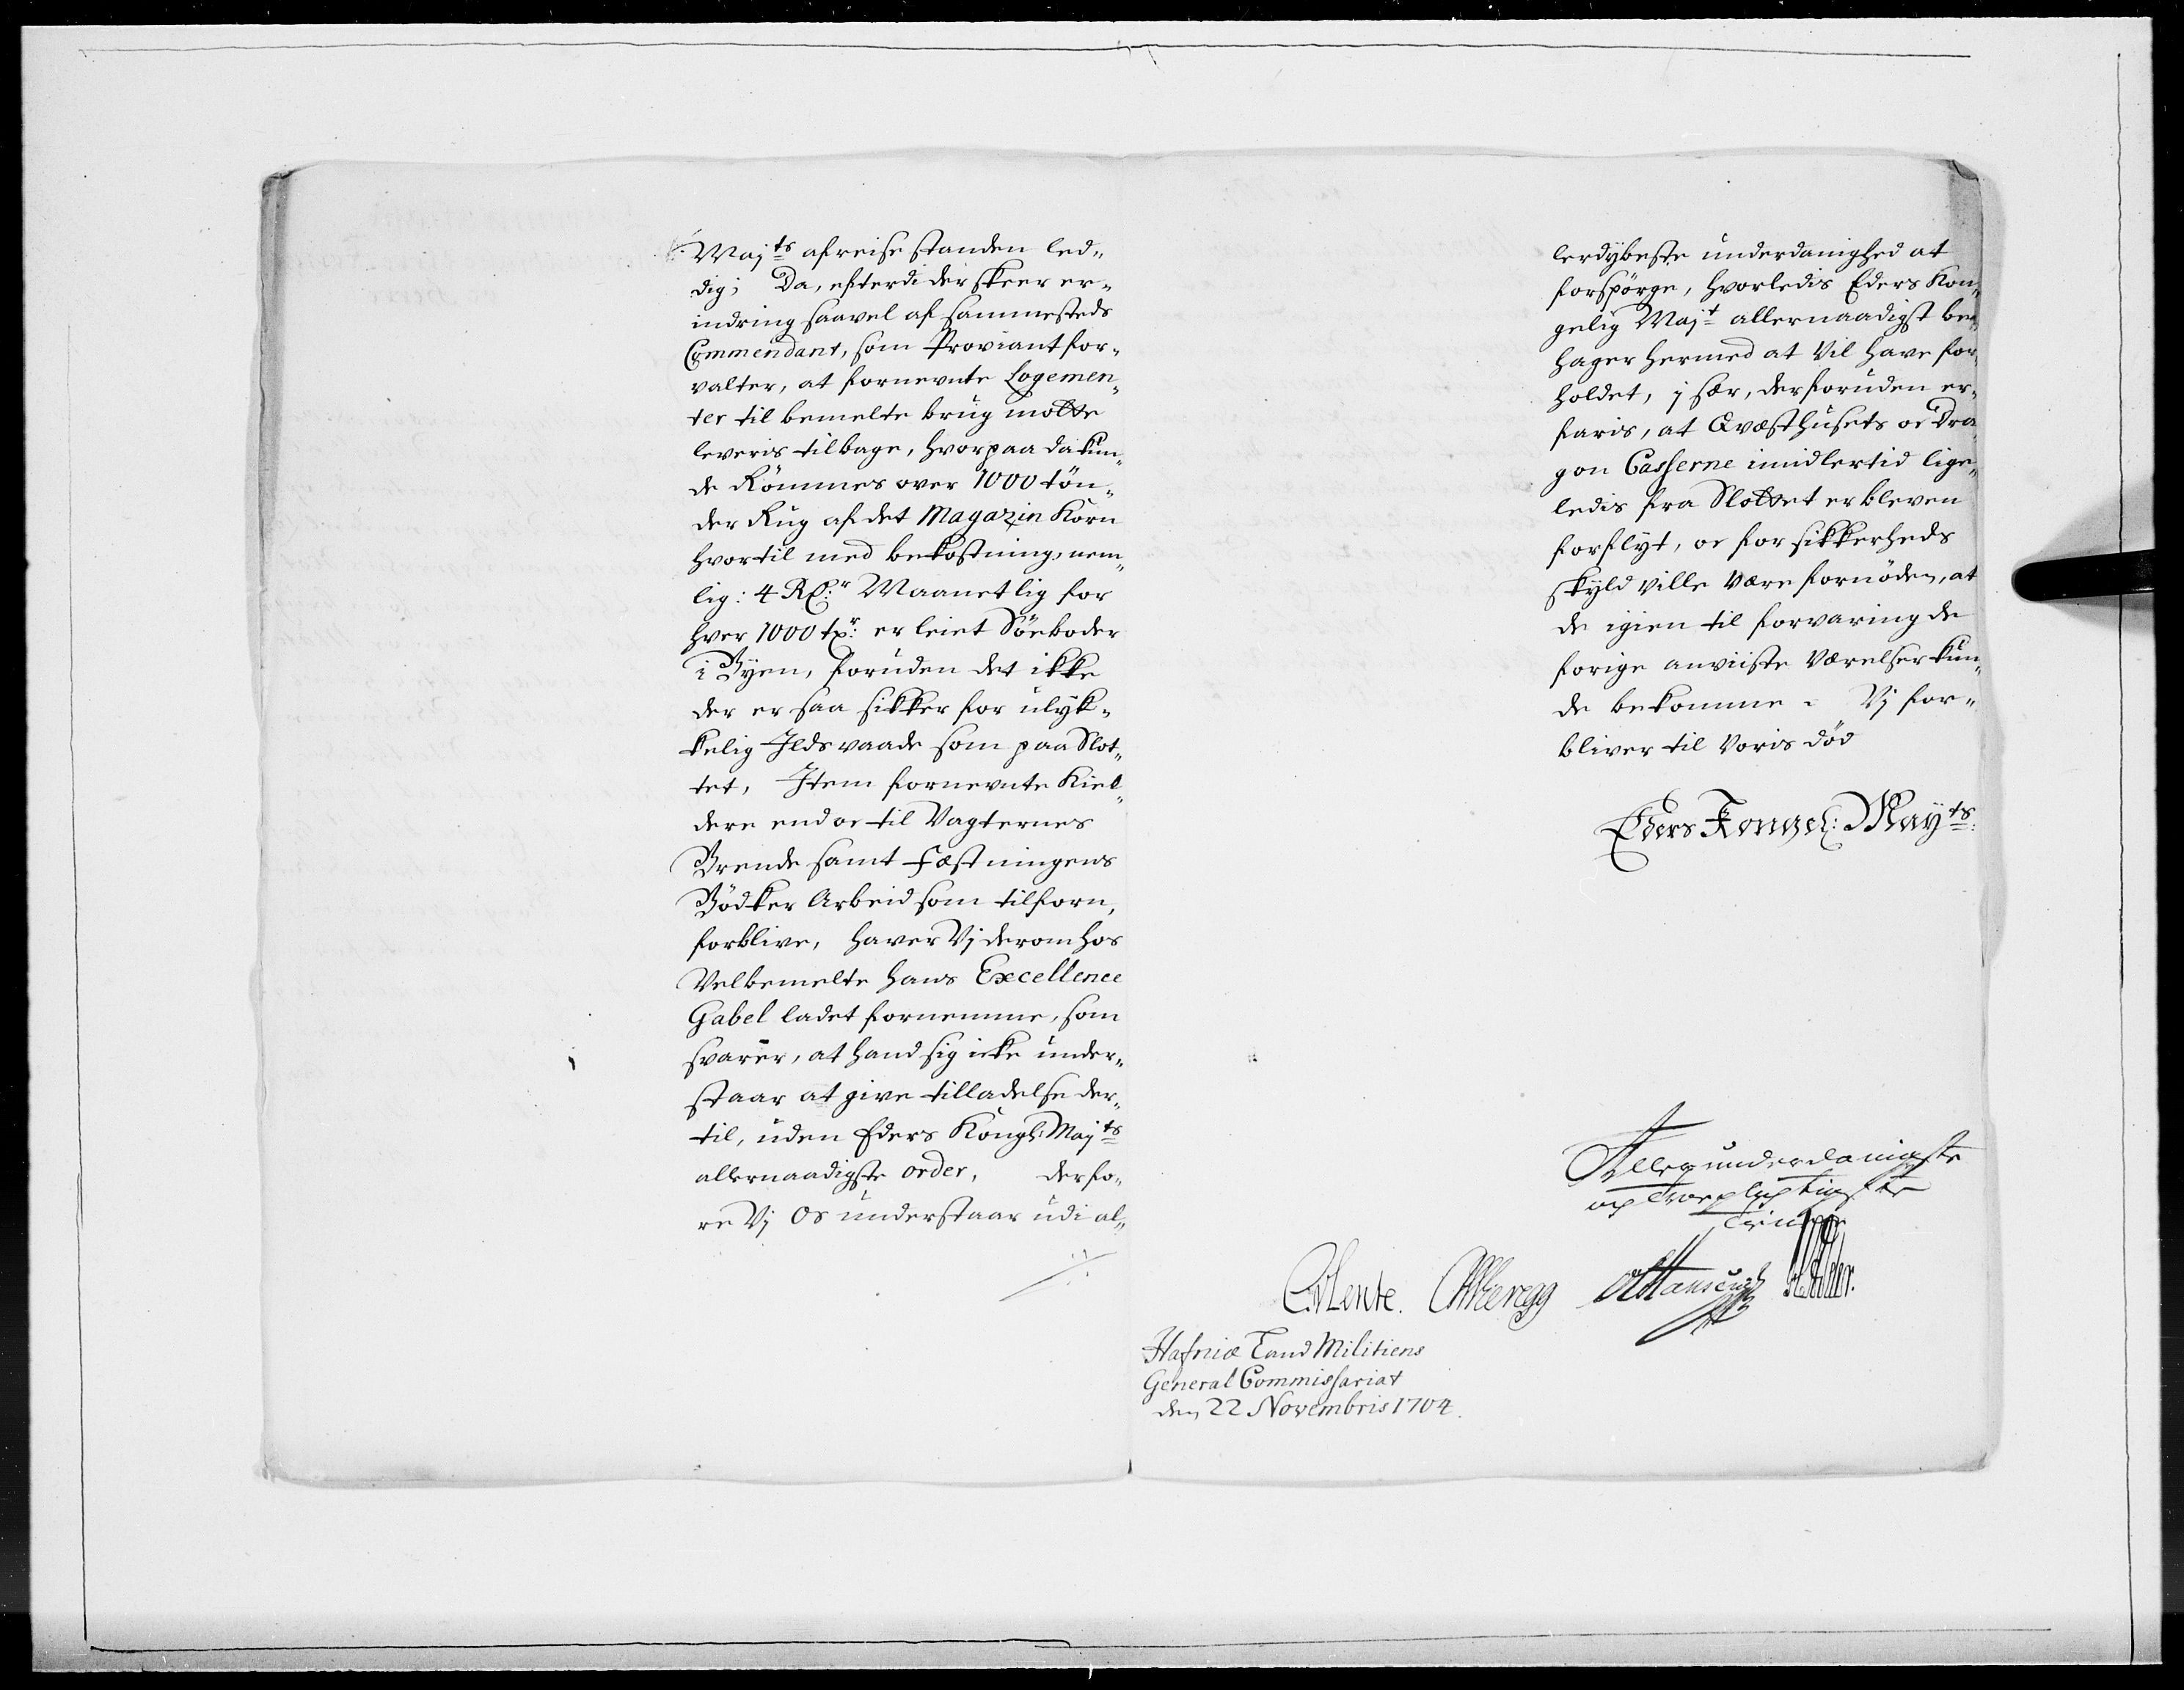 Majts afreise standen led„
dig; Da, efterdi der skeer er„
indring saavel af sammesteds
Commendant, som Proviantfor„
valter, at fornevnte Logemen„
ter til bemelte brug motte
leveris tilbage, hvorpaa da kun„
de Römmes over 1000 tön„
der Rug af det Magazin Korn
hvortil med bekostning, nem„
lig: 4 Rd:r Maanetlig for
hver 1000 tr: er leiet Söeboder
i Byen, foruden det ikke
der er saa sikker for ulyk„
kelig Ildsvaade som paa Slot„
tet, Item fornevnte Kiel„
dere end oc til Vagternes
Brende samt Fæstningens
Bödker Arbeid som tilforn,
forblive, haver Vj derom hos
Velbemelte hans Excellence
Gabel ladet fornemme, som
svarer, at hand sig icke under„
staar at give tilladelse der„
til, uden Eders Kongl: Majts
allernaadigste order, derfo„
re Vj Os understaar udi al„
lerdybeste underdanighed at
forspörge, hvorledis Eders Kon„
gelig Majt allernaadigst be„
hager hermed at Vil have for„
holdet, j sær, derforuden er„
faris, at Qvæsthusets oc Dra„
gon Casserne imidlertid lige„
ledis fra Slottet er bleven
forflyt, oc for sikkerheds
skyld ville være fornöden, at
de igien til forvaring de
forige anviiste Værelser kun„
de bekomme. Vj for„
bliver til voris död
Eders Kongel: Mayts:
Allerunderdanigste
og Troepligtigste
Tienere
Hafniæ Land Militiens
General Commissariat
den 22 Novembris 1704.